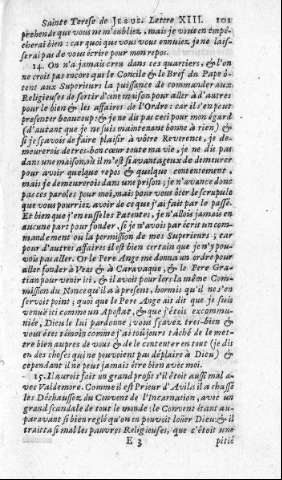 Sainte Terese de Jesus. Lettre XIII. 101
prehende que vous ne m'oubliez, mais je vous en empê-
cherai bien: car quoi que vous vous ennuiez, je ne lais-
serai pas de vous écrire pour mon repos.
14. On n'a jamais creu dans ces quartiers, & l'on
ne croit pas encore que le Concile & le Bref du Pape ô-
tent aux Superieurs la puissance de commander aux
Religieuses de sortir d'une maison pour aller à d'autres
pour le bien & les affaires de l'Ordre: car il s'en peut
presenter beaucoup: & je ne dis pas ceci pour mon égard
(d'autant que je ne suis maintenant bonne à rien) &
si je sçavois de faire plaisir à vôtre Reverence, je de-
meurerois de tres-bon cœur toute ma vie, je ne dis pas
dans une maison, où il m'est si avantageux de demeurer
pour avoir quelque repos & quelque contentement,
mais je demeurerois dans une prison; je n'avance donc
pas ces paroles pour moi, mais pour vous ôter le scrupule
que vous pourriez avoir de ce que j'ai fait par le passé.
Et bien que j'en eusse les Patentes, je n'allois jamais en
aucune part pour fonder, si je n'avois par écrit un com-
mandement ou la permission de mes Superieurs; car
pour d'autres affaires il est bien certain que je n'y pou-
vois pas aller. Or le Pere Ange me donna un ordre pour
aller fonder à Veas & à Caravaque, & le Pere Gra-
tian pour venir ici, & il avoit pour lers la même Com-
mission du Nonce qu'il a à present, hormis qu'il ne s'en
servoit point; quoi que le Pere Ange ait dit que je suis
venuë ici comme un Apostat, & que j'étois excommu-
niée, Dieu le lui pardonne; vous sçavez tres-bien &
vous étes témoin comme j'ai toûjours tâché de le met-
tre bien aupres de vous & de le contenter en tout (je dit
en des choses qui ne pouvoient pas déplaire à Dieu) &
cependant il ne peut jamais être bien avec moi.
15. Il auroit fait un grand profit s'il étoit aussi mal a-
vec Valdemore. Comme il est Prieur d'Avila il a chassé
les Déchaussez du Convent de l'Incarnation, avec un
grand scandale de tout le monde: le Convent étant au-
paravant si bien reglé qu'on en pouvoit loüer Dieu: & il
traitta si mal les pauvres Religieuses, que c'étoit une
E 3 pitié